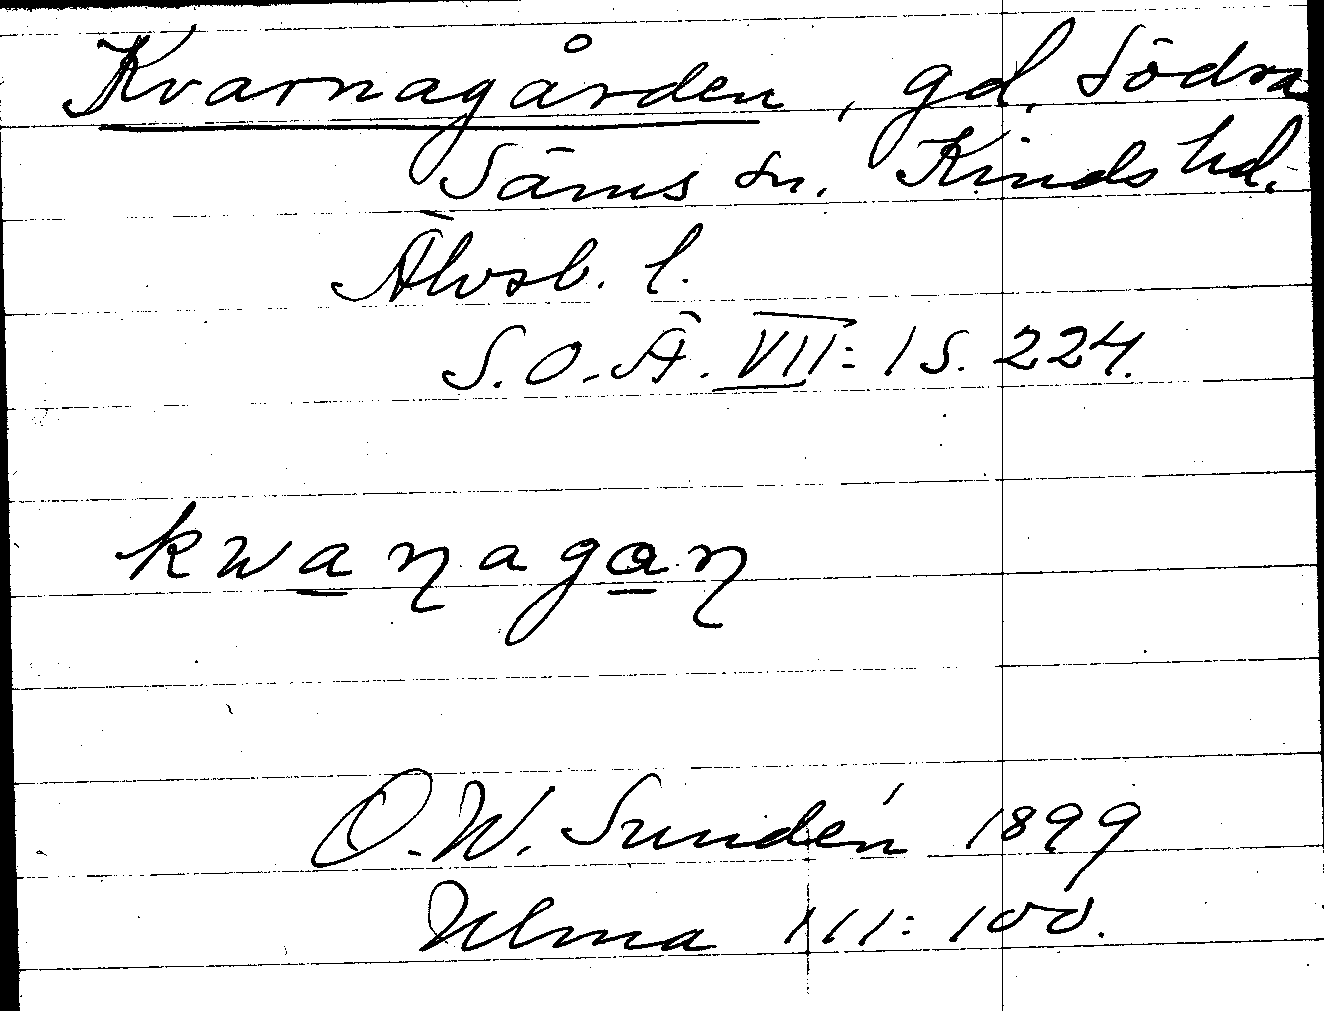 Kvarnagården, gd, Södra
Säms sn. Kinds hd.
Älvsb. l.
S.O.Ä. VII: 1 S. 224.
kwaɳagaɳ
O.W. Sundén 1899
Ulma 111: 100.